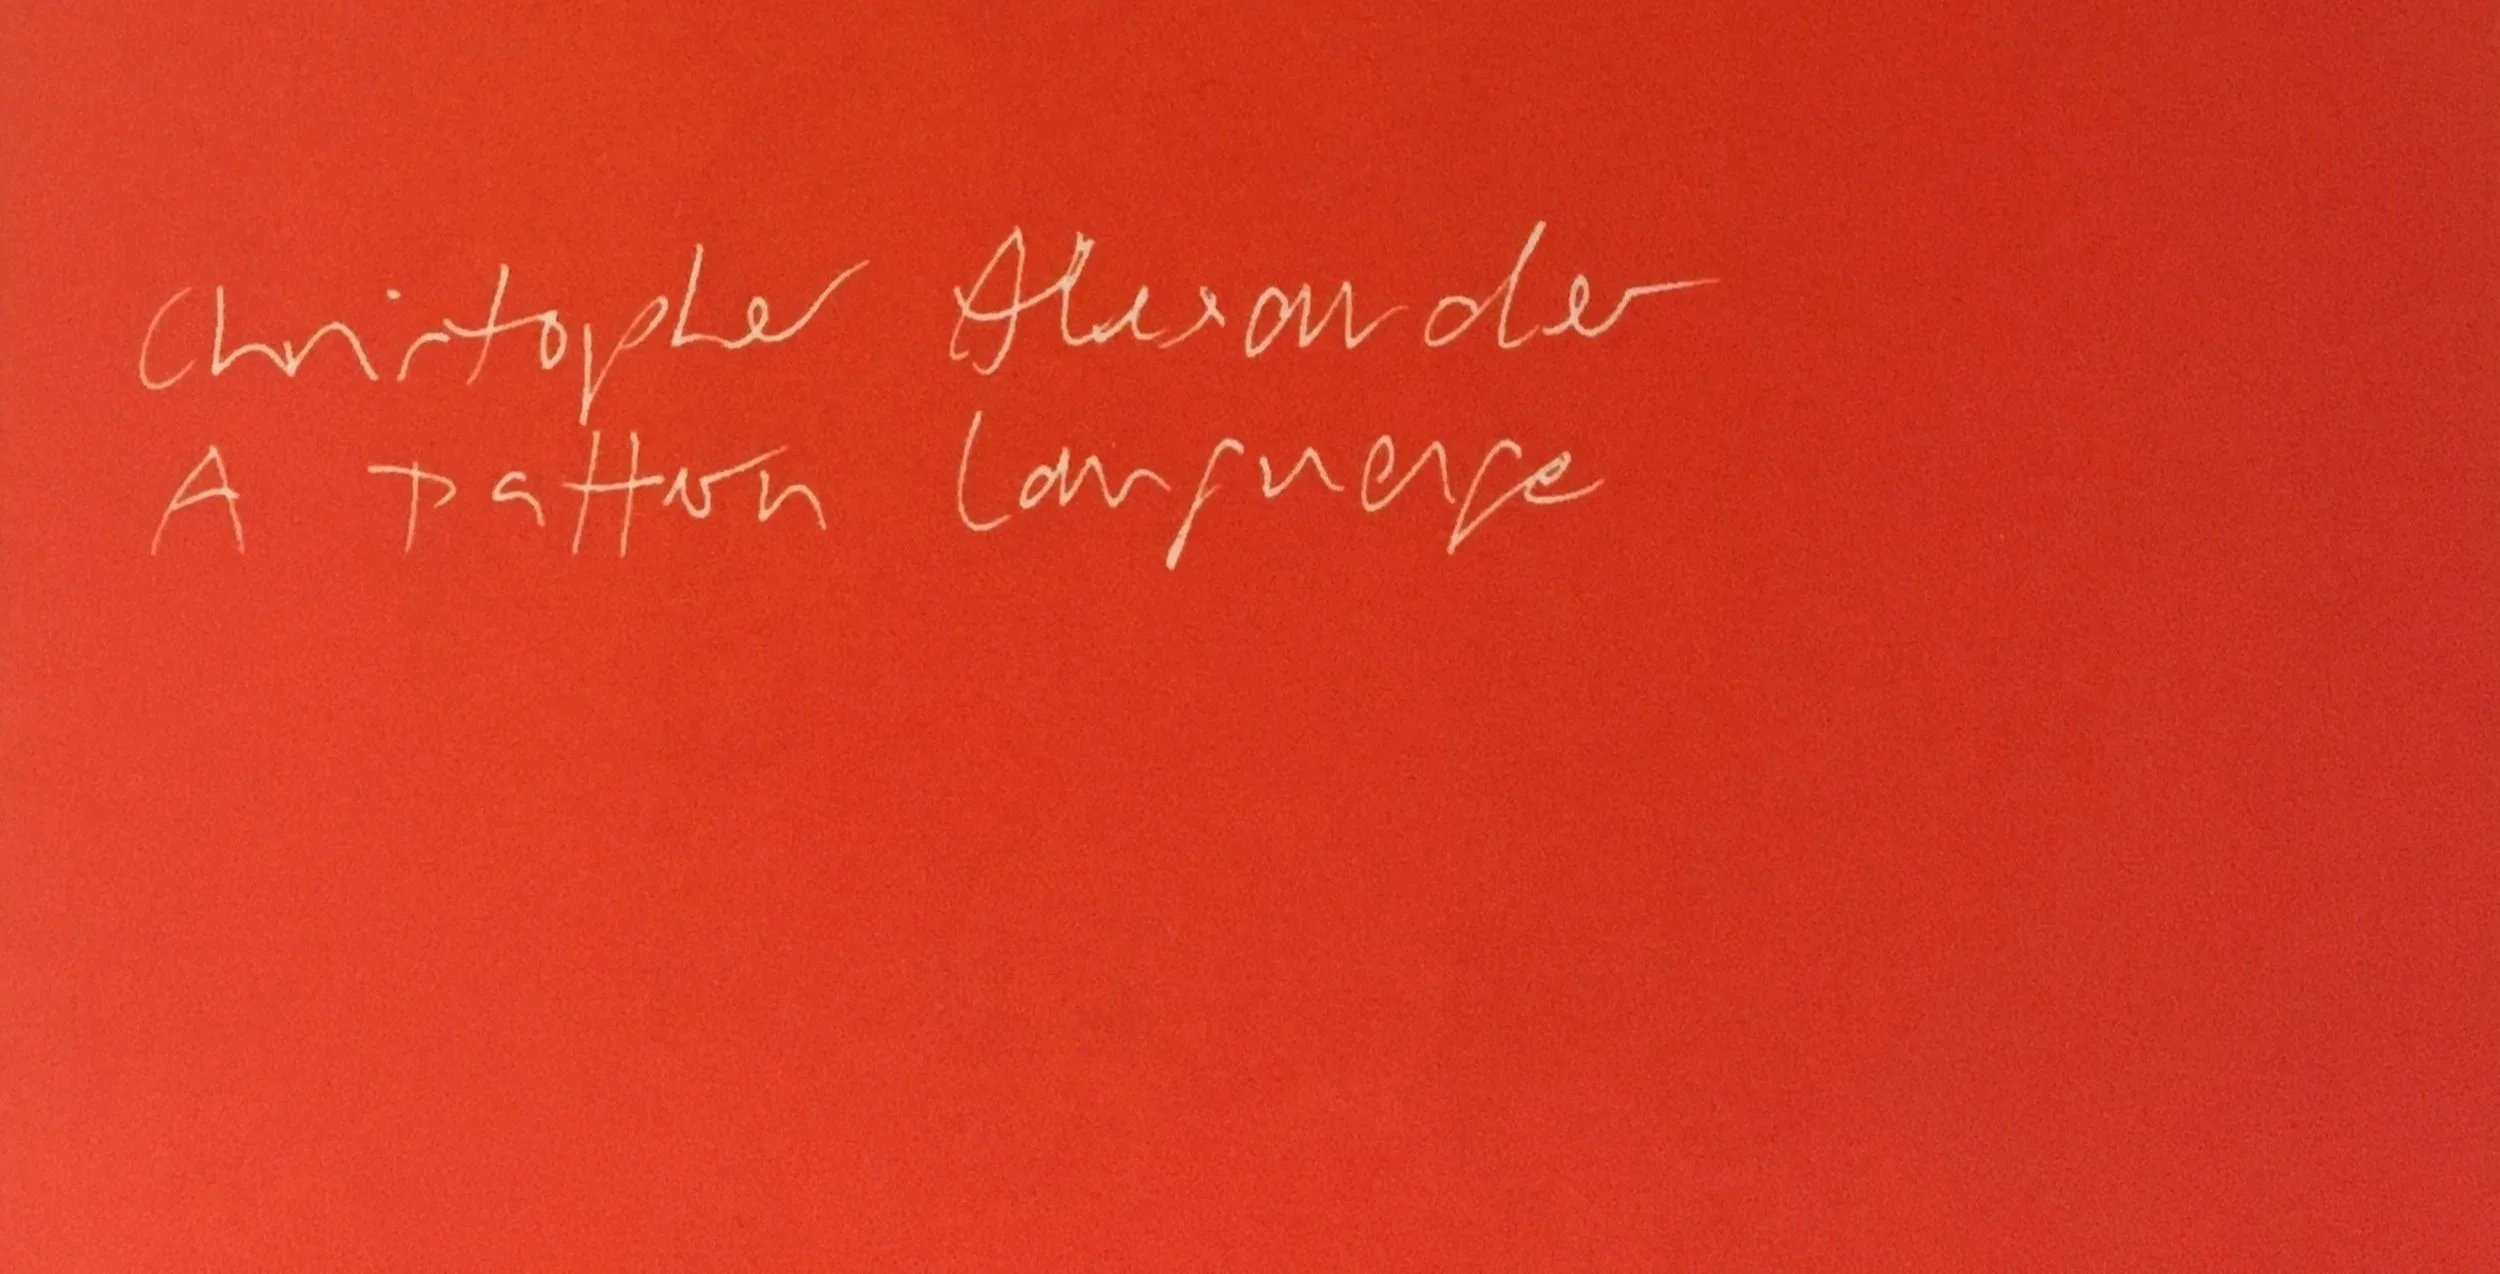 Christopher Alexander
A Pattern Language